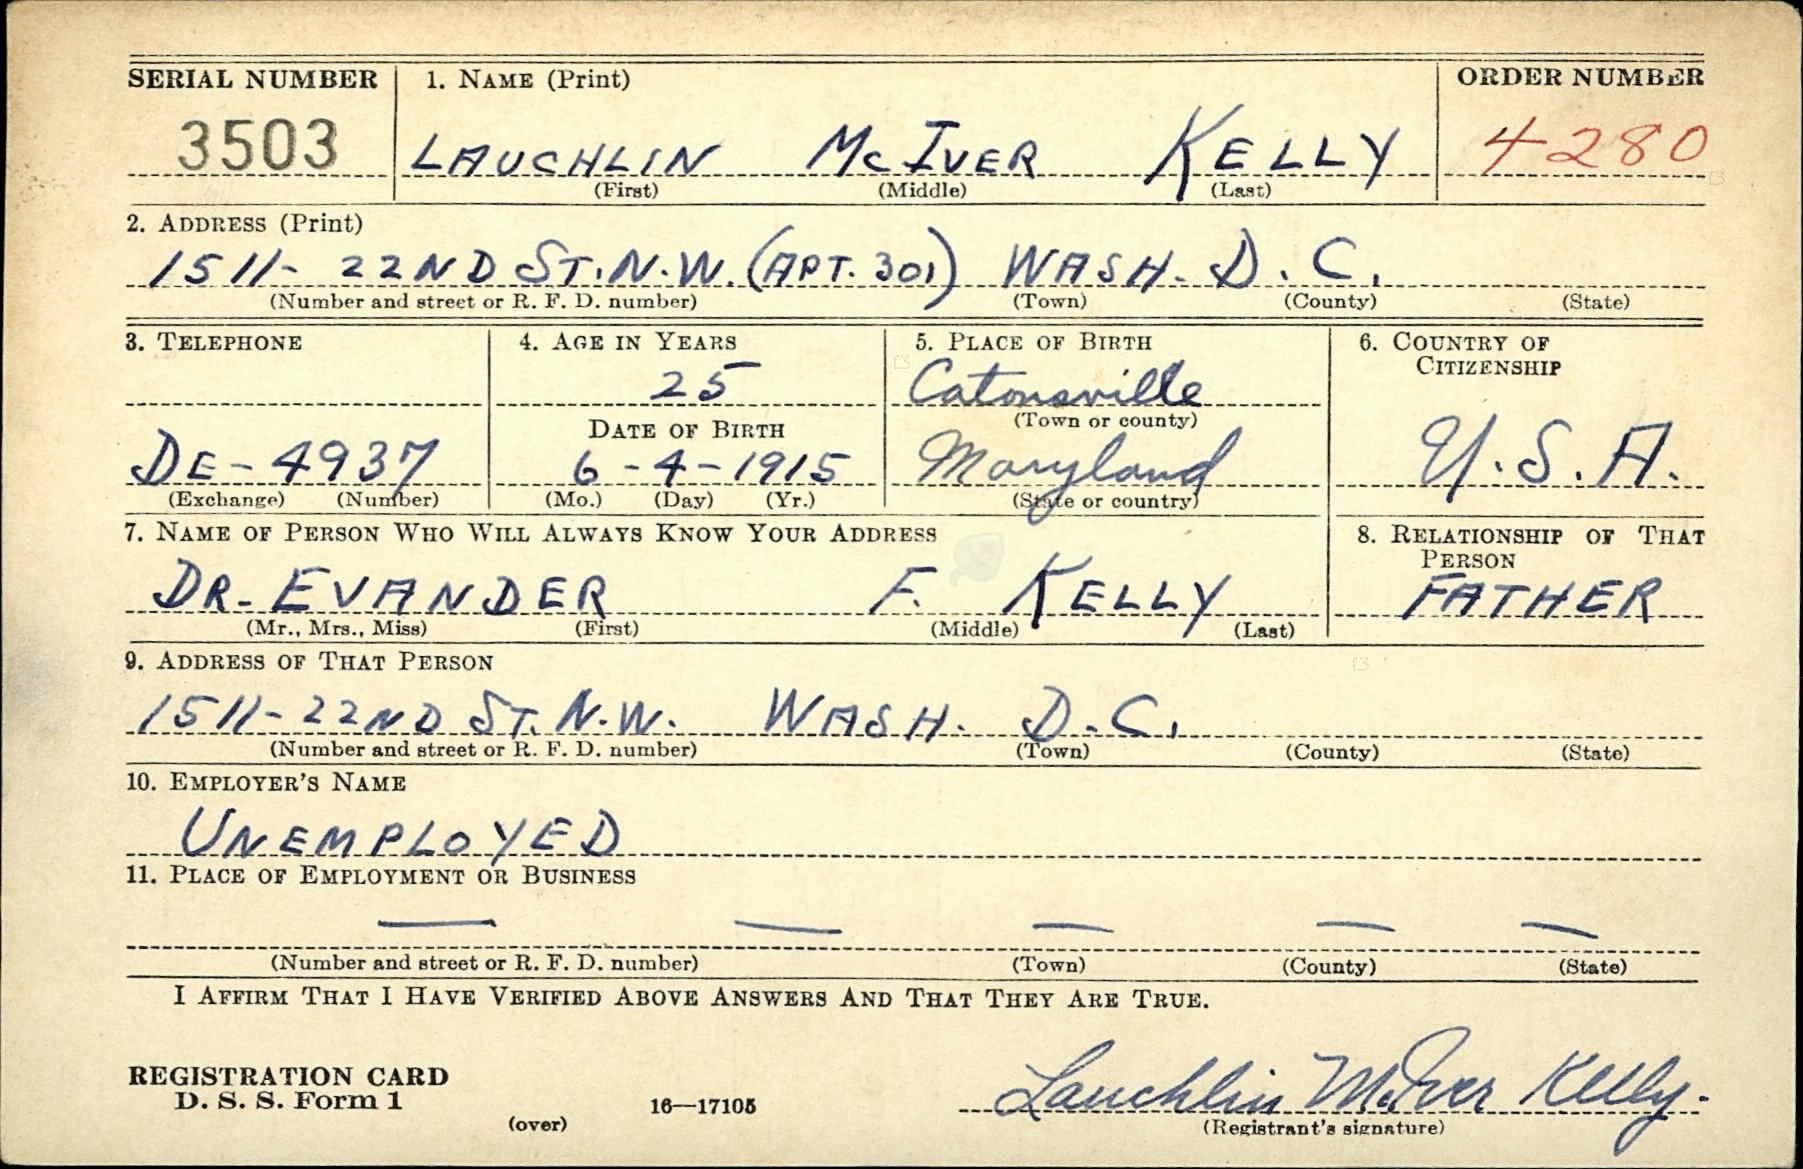 SERIAL NUMBER 1. NAME (Print) ORDER NUMBER
3503 LAUCHLIN MCIVER KELLY 4280
(First) (Middle) (Last)
2. ADDRESS (Print)
1511- 22ND ST. N.W. (APT. 301) WASH. D. C.
(Number and street or R. F. D. number) (Town) (County) (State)
3. TELEPHONE 4. AGE IN YEARS 5. PLACE OF BIRTH 6. COUNTRY OF
CITIZENSHIP
25 Catonsville
(Town or county)
DATE OF BIRTH
DE-4937 6-4-1915 Maryland U.S.A.
(Exchange) (Number) (Mo.) (Day) (Yr.) (State or country)
7. NAME OF PERSON WHO WILL ALWAYS KNOW YOUR ADDRESS 8. RELATIONSHIP OF THAT
PERSON
DR. EVANDER F. KELLY FATHER
(Mr., Mrs., Miss) (First) (Middle) (Last)
9. ADDRESS OF THAT PERSON
1511-22ND ST. N.W. WASH. D.C.
(Number and street or R. F. D. number) (Town) (County) (State)
10. EMPLOYER'S NAME
UNEMPLOYED
11. PLACE OF EMPLOYMENT OR BUSINESS
— — — — —
(Number and street or R. F. D. number) (Town) (County) (State)
I AFFIRM THAT I HAVE VERIFIED ABOVE ANSWERS AND THAT THEY ARE TRUE.
REGISTRATION CARD
D. S. S. Form 1 16—17105 Lauchlin McIver Kelly.
(over) (Registrant's signature)